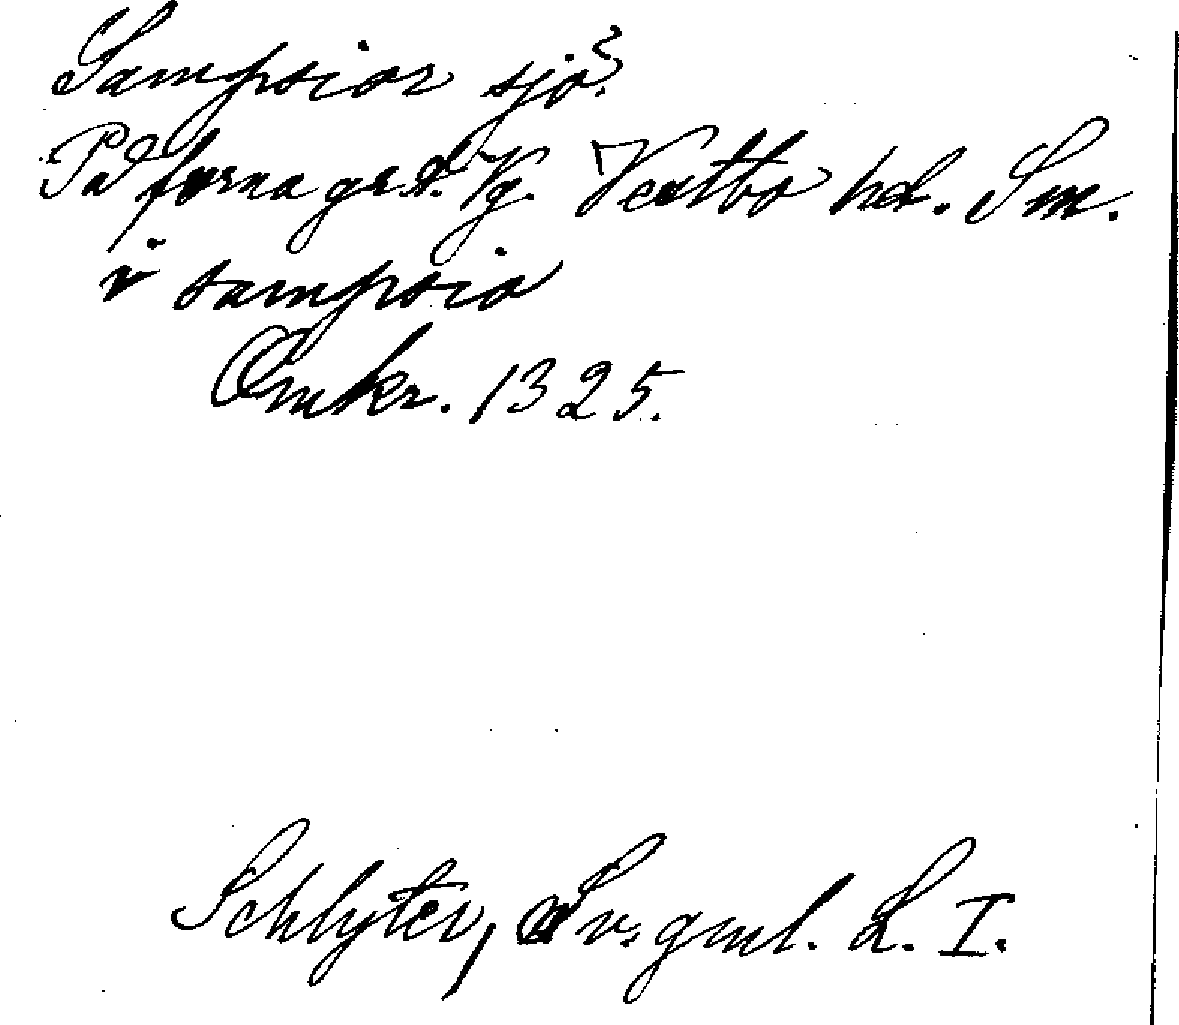 Sampsior sjö?
På forna gr. t. Vg. Vestbo hd. Sm.
i sampsio
Omkr. 1325.
Schlyter, Sv. gml. L. I.